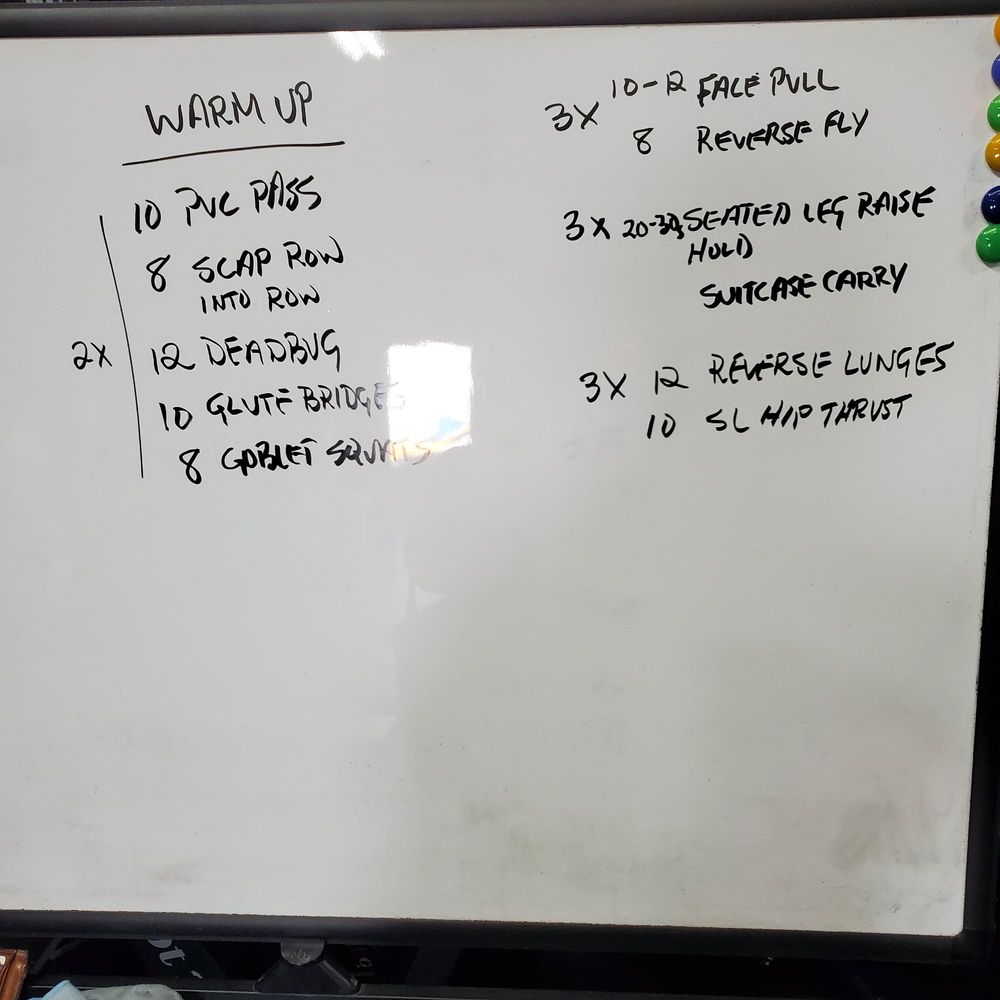 WARM UP
10 PVC PASS
8 SCAP ROW
INTO ROW
2X 12 DEADBUG
10 GLUTE BRIDGES
8 GOBLET SQUATS
3X 10-12 FACE PULL
8 REVERSE FLY
3X 20-30s SEATED LEG RAISE
HOLD
SUITCASE CARRY
3X 12 REVERSE LUNGES
10 SL HIP THRUST